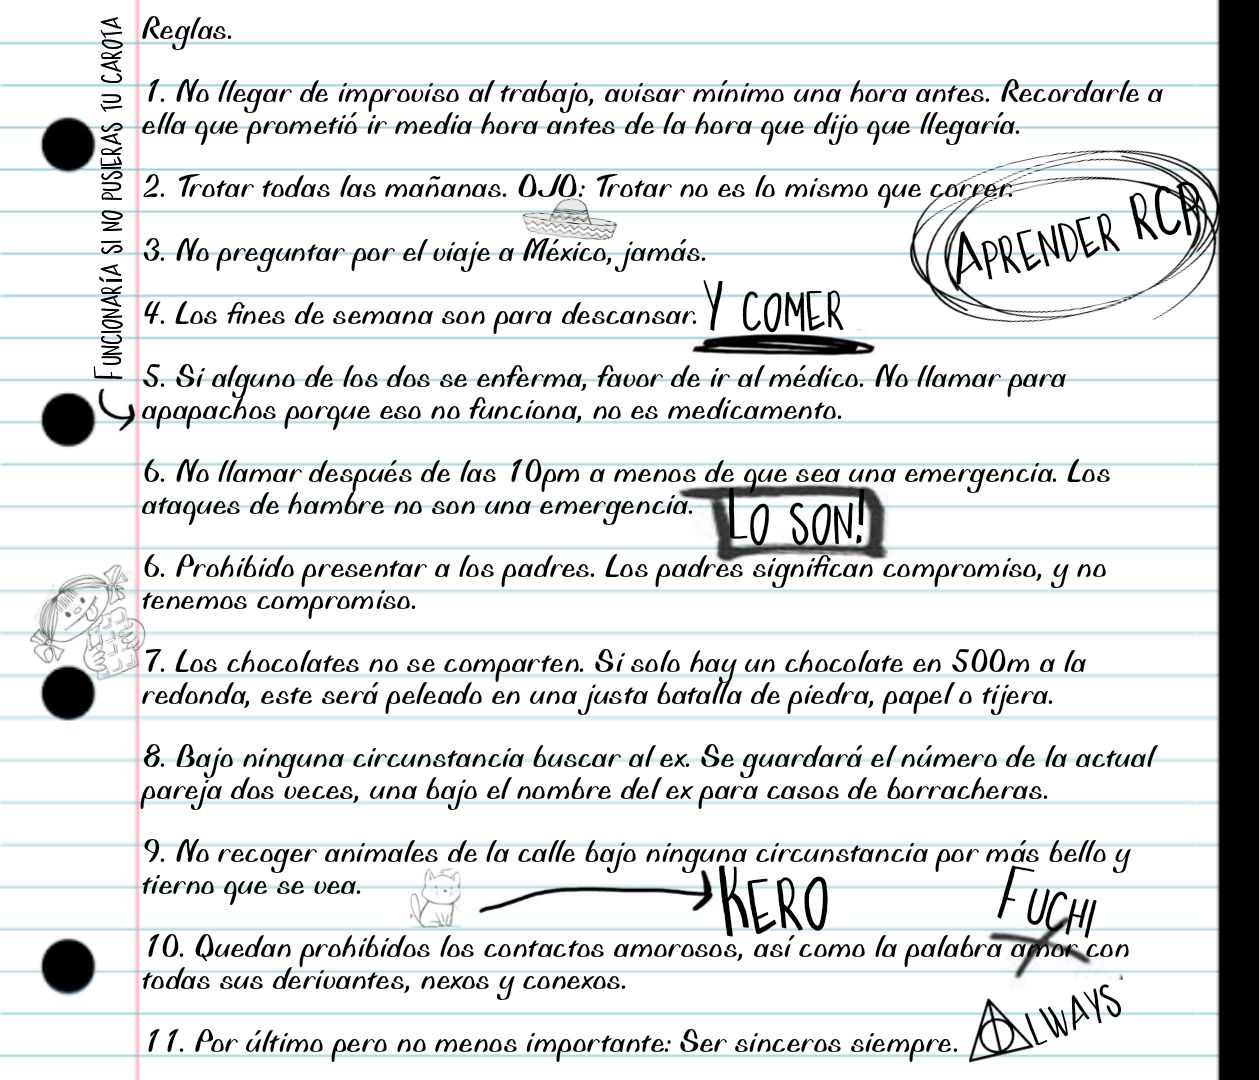 Reglas.
1. No llegar de improviso al trabajo, avisar mínimo una hora antes. Recordarle a
ella que prometió ir media hora antes de la hora que dijo que llegaría.
2. Trotar todas las mañanas. OJO: Trotar no es lo mismo que correr.
APRENDER RCP
3. No preguntar por el viaje a México, jamás.
4. Los fines de semana son para descansar. Y COMER
5. Si alguno de los dos se enferma, favor de ir al médico. No llamar para
apapachos porque eso no funciona, no es medicamento.
FUNCIONARÍA SI NO PUSIERAS TU CAROTA
6. No llamar después de las 10pm a menos de que sea una emergencia. Los
ataques de hambre no son una emergencia. LO SON!
6. Prohibido presentar a los padres. Los padres significan compromiso, y no
tenemos compromiso.
7. Los chocolates no se comparten. Si solo hay un chocolate en 500m a la
redonda, este será peleado en una justa batalla de piedra, papel o tijera.
8. Bajo ninguna circunstancia buscar al ex. Se guardará el número de la actual
pareja dos veces, una bajo el nombre del ex para casos de borracheras.
9. No recoger animales de la calle bajo ninguna circunstancia por más bello y
tierno que se vea.
KERO
FUCHI
10. Quedan prohibidos los contactos amorosos, así como la palabra amor con
todas sus derivantes, nexos y conexos.
11. Por último pero no menos importante: Ser sinceros siempre.
ALWAYS